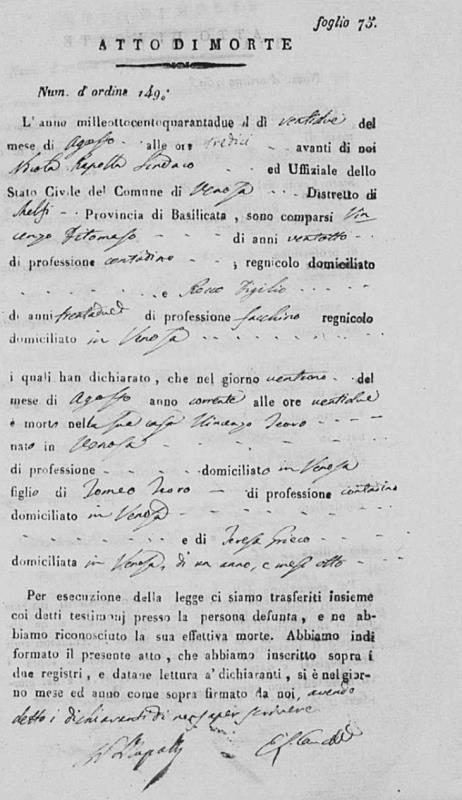 foglio 75.
ATTO DI MORTE
Num. d'ordine 149.
L'anno milleottocentoquarantadue il di ventidue del
mese di Agosto alle ore tredici avanti di noi
Nicola Rapolla Sindaco ed Uffiziale dello
Stato Civile del Comune di Venosa Distretto di
Melfi Provincia di Basilicata, sono comparsi Vin
cenzo Ditomaso di anni ventotto
di professione contadino , regnicolo domiciliato
e Rocco Figilio
di anni trentadue di professione facchino regnicolo
domiciliato in Venosa
i quali han dichiarato, che nel giorno ventuno del
mese di Agosto anno corrente alle ore ventidue
è morto nella sua casa Vincenzo Teoro
nato in Venosa
di professione domiciliato in Venosa
figlio di Tomeo Teoro di professione contadino
domiciliato in Venosa
e di Teresa Grieco
domiciliata in Venosa, di un anno, e mesi otto
Per esecuzione della legge ci siamo trasferiti insieme
coi detti testimonj presso la persona defunta, e ne ab-
biamo riconosciuto la sua effettiva morte. Abbiamo indi
formato il presente atto, che abbiamo inscritto sopra i
due registri, e datane lettura a' dichiaranti, si è nel gior-
no mese ed anno come sopra firmato da noi, avendo
detto i dichiaranti di non saper scrivere
N Rapolla